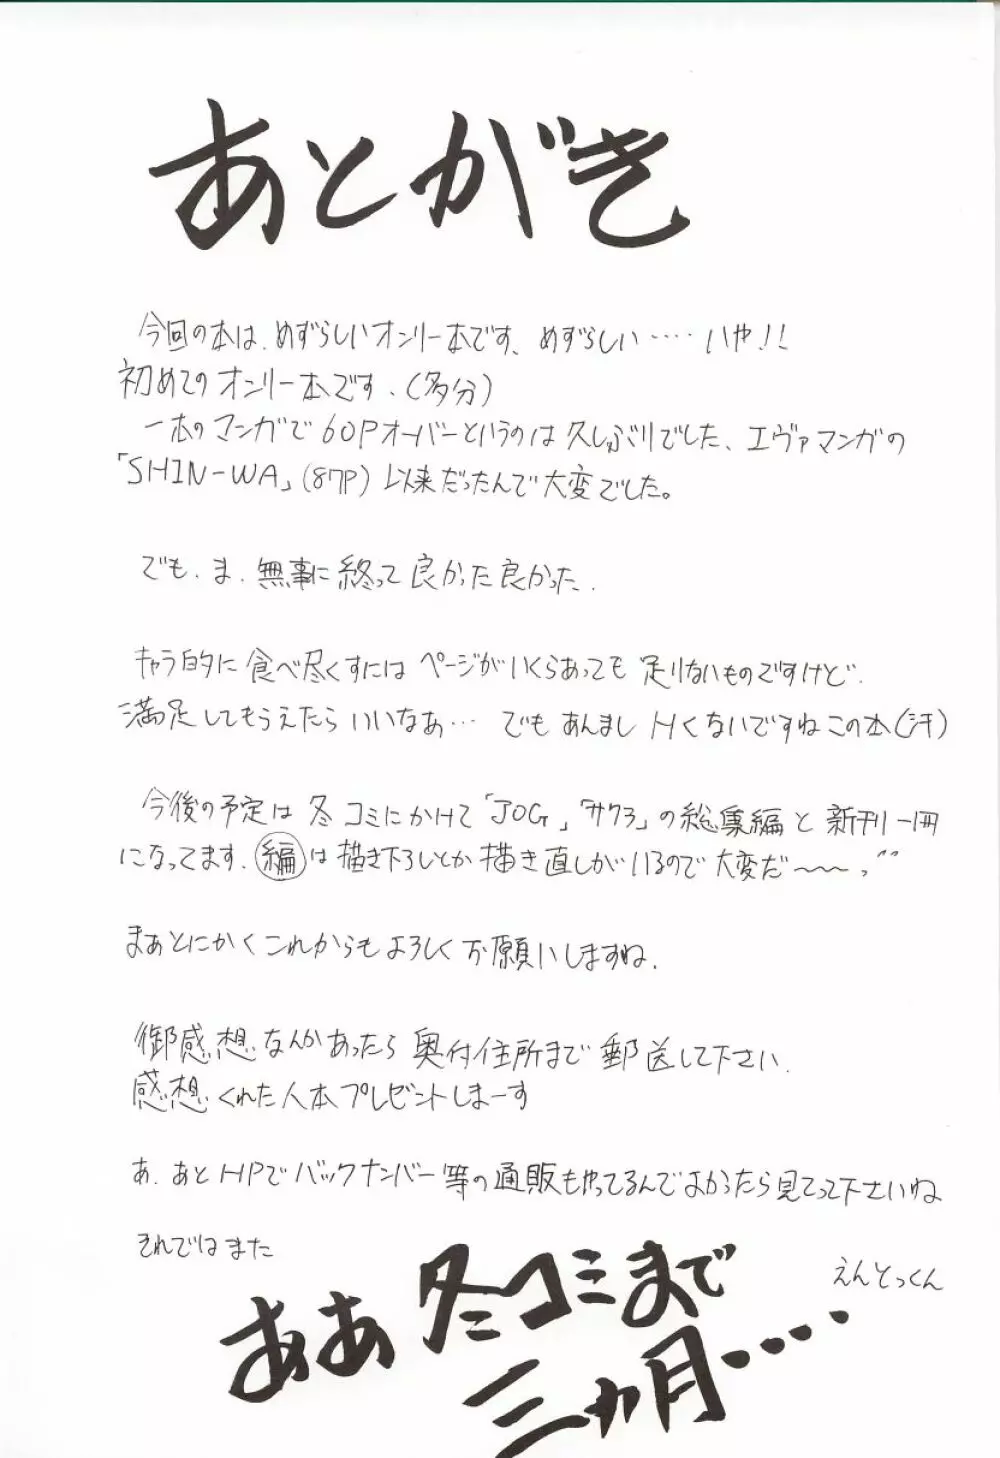 あとがき
今回の本は、めずらしいオンリー本です、めずらしい‥‥いや!!
初めてのオンリー本です.(多分)
一本のマンガで60Pオーバーというのは久しぶりでした、エヴァマンガの
「SHIN-WA」(87P)以来だったんで大変でした。
でも.ま.無事に終って良かった良かった.
キャラ的に食べ尽くすにはページがいくらあっても足りないものですけど.
満足してもらえたらいいなぁ… でもあんましHくないですねこの本(汗)
今後の予定は冬コミにかけて「JOG」「サクラ」の総集編と新刊一冊
になってます.編は描き下ろしとか描き直しがいるので大変だ〜〜っ
まぁとにかくこれからもよろしくお願いしますね.
御感想なんかあったら奥付住所まで郵送して下さい.
感想くれた人本プレゼントしまーす
あ.あとHPでバックナンバー等の通販もやってるんでよかったら見てって下さいね
それではまた
えんとっくん
ああ冬コミまで
三ヵ月‥‥